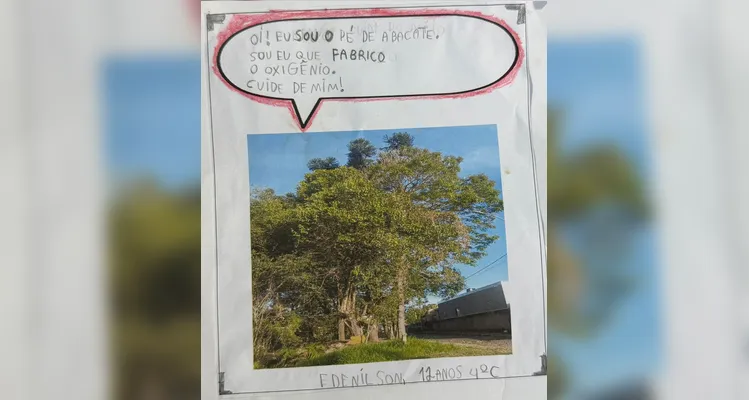 OI! EU SOU O PÉ DE ABACATE.
SOU EU QUE FABRICO
O OXIGÊNIO.
CUIDE DE MIM!
EDENILSON, 12 ANOS 4ºC